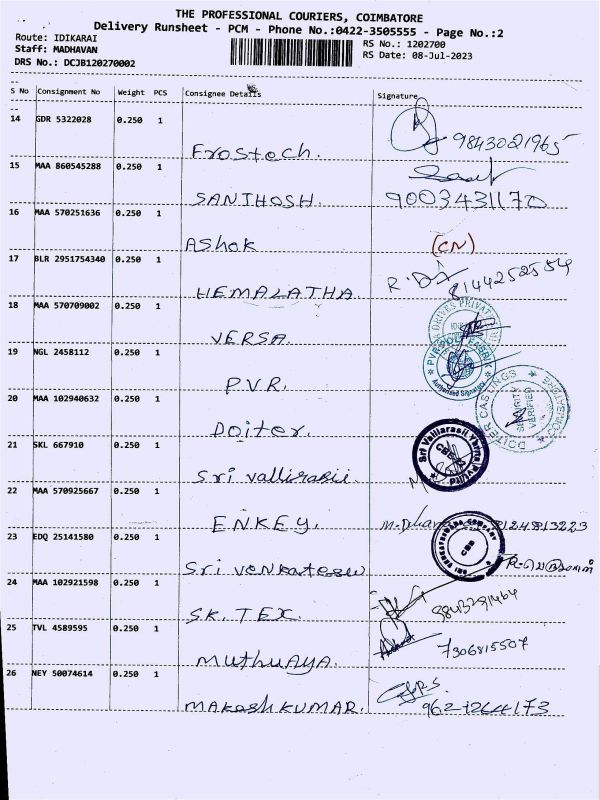 THE PROFESSIONAL COURIERS, COIMBATORE
Delivery Runsheet - PCM - Phone No.:0422-3505555 - Page No.:2
Route: IDIKARAI
RS No.: 1202700
Staff: MADHAVAN
RS Date: 08-Jul-2023
DRS No.: DCJB120270002
S No Consignment No Weight PCS Consignee Details Signature
14 GDR 5322028 0.250 1
Frostech. 9843021965
15 MAA 860545288 0.250 1
SANTHOSH. 9003431170
16 MAA 570251636 0.250 1
Ashok (CN)
17 BLR 2951754340 0.250 1
HEMALATHA
18 MAA 570709002 0.250 1
VERSA.
19 NGL 2458112 0.250 1
P.V.R. Authorised Signatory
20 MAA 102940632 0.250 1
Doiter. DOITER CASTINGS SECURITY VERIFIED COIMBATORE
21 SKL 667910 0.250 1
Sri vallirasii
22 MAA 570925667 0.250 1
ENKEY. 8124813223
23 EDQ 25141580 0.250 1
Sri venkatesw
24 MAA 102921598 0.250 1
SK. TEX. 9843291464
25 TVL 4589595 0.250 1
Muthuaya. 7306815507
26 NEY 50074614 0.250 1
MAKesh KUMAR.